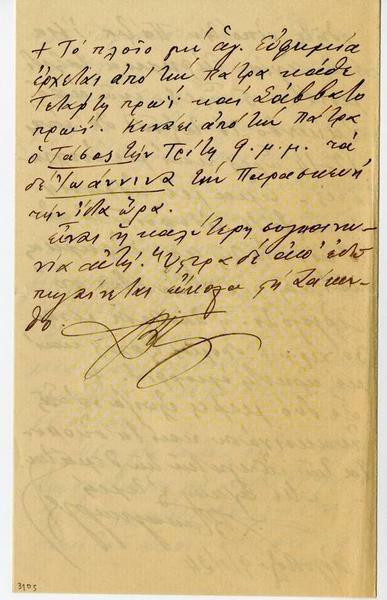 + Τό πλοῖο γιά ἁγ. Εὐφημία
ἔρχεται ἀπό τήν Πάτρα κάθε
Τετάρτη πρωί καί Σάββατο
πρωί. Κινάει ἀπό τήν Πάτρα
ὁ Τάσος τήν Τρίτη 9 μ.μ. τά
δέ Ἰωάννινα τήν Παρασκευή
τήν ἴδια ὥρα.
Εἶναι ἡ καλύτερη συγκοινω-
νία αὐτή. Ὕστερα δέ ἀπ' ἐδῶ
πηγαίνεται εὔκολα στή Ζάκυν-
θο.
3105